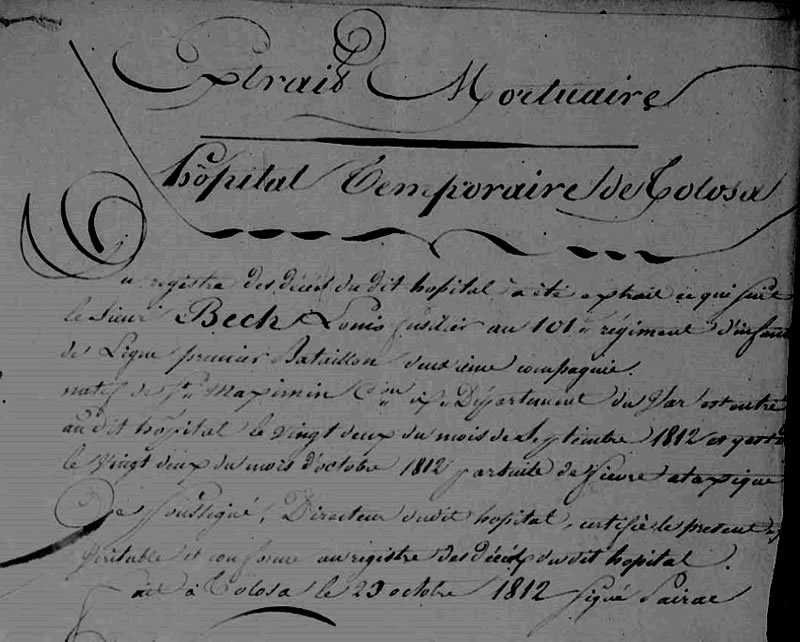 Extrait Mortuaire
hôpital Temporaire de Tolosa
Du registre des décès du dit hopital a été extrait ce qui suit
le Sieur Bech Louis fusilier au 101e régiment d'infant
de Ligne premier Bataillon deuxieme compagnie.
natif de St Maximin Département du Var est entré
au dit hôpital le vingt deux du mois de Septembre 1812 et y est
le vingt deux du mois d'octobre 1812 par suite de fievre ataxique
Je Soussigné, Directeur dudit hopital, certifie le present
Véritable et conforme au registre des décès du dit hopital.
fait à Tolosa le 23 octobre 1812 Signé